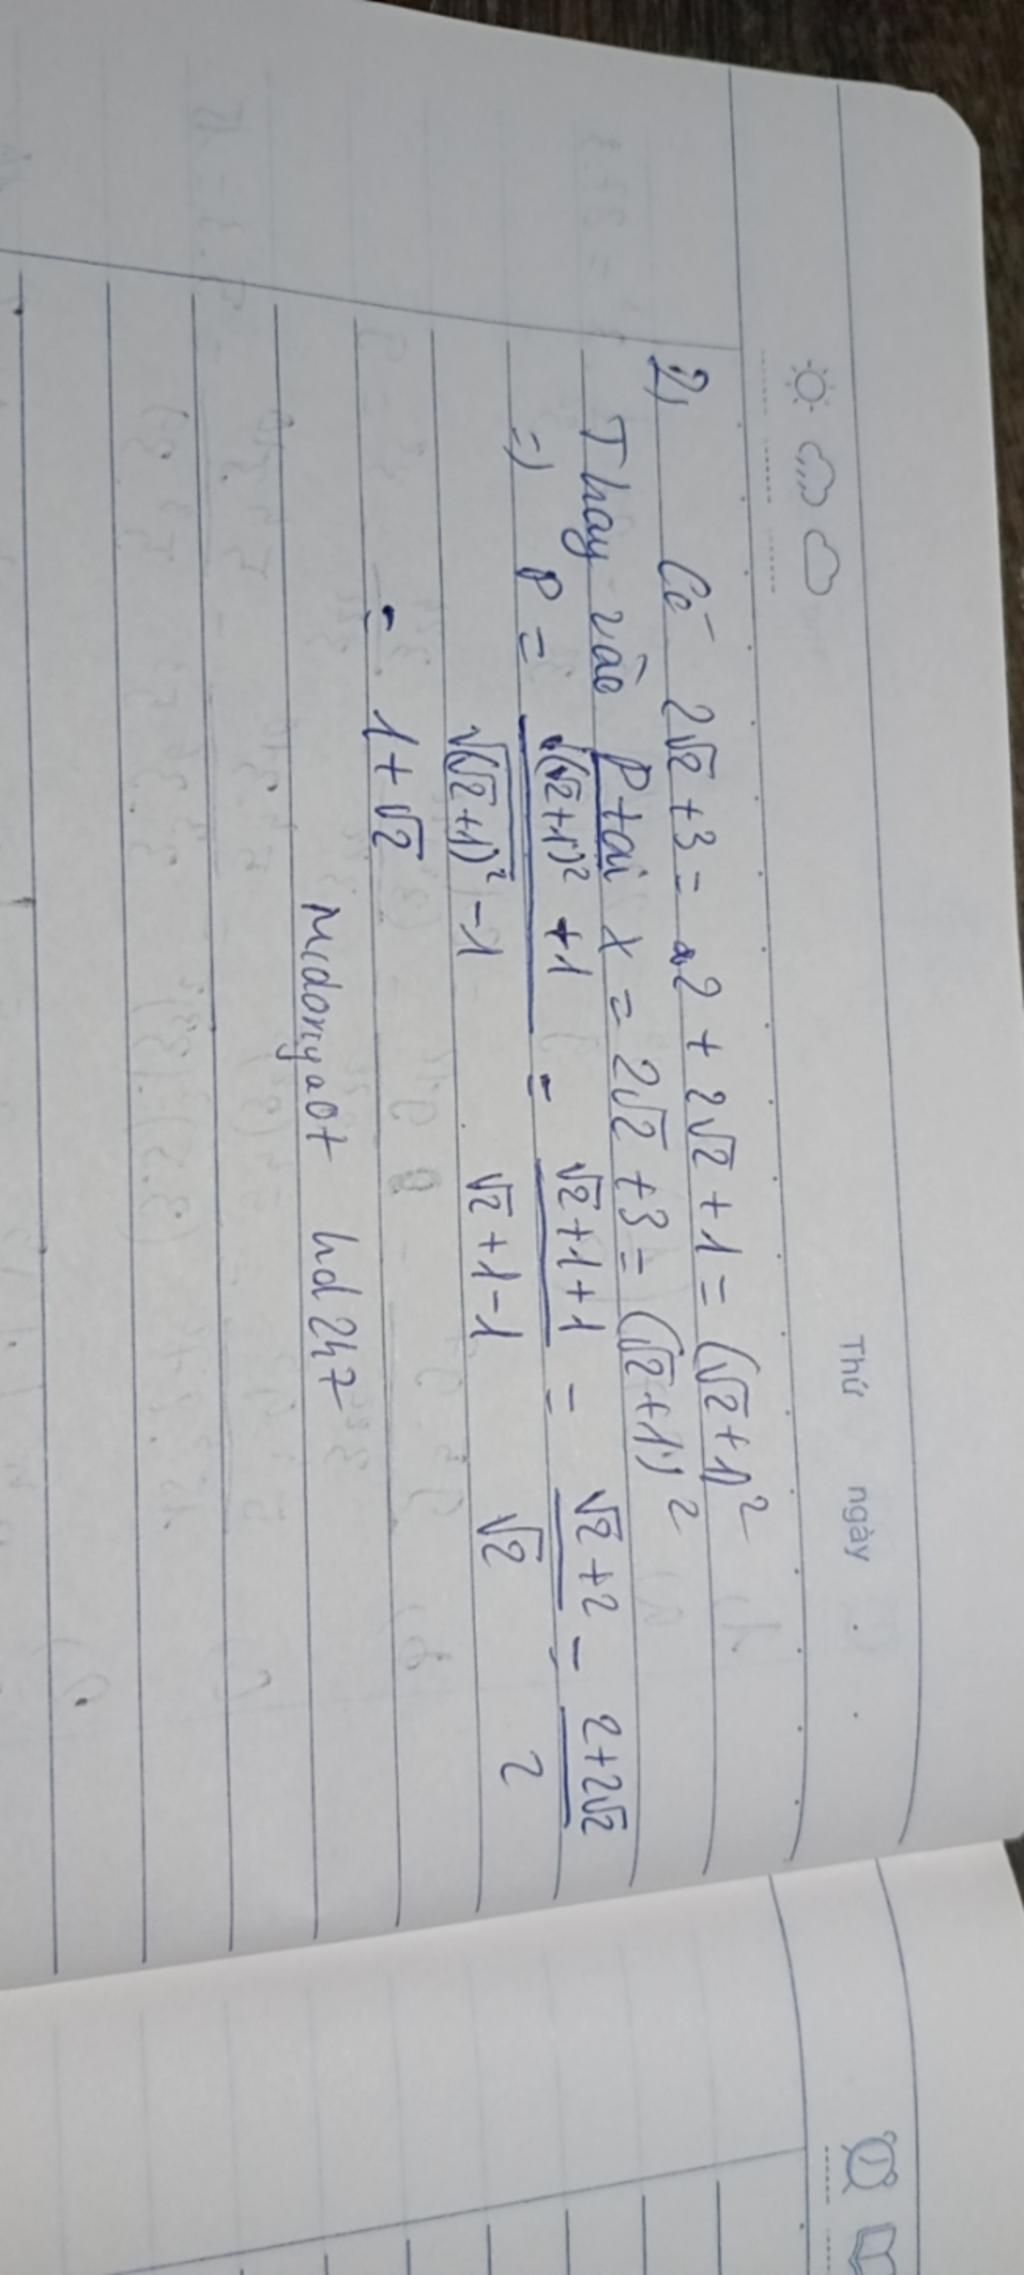 Thứ ngày . .
2, Có 2√2 + 3 = 2 + 2√2 + 1 = (√2 + 1)²
Thay vào P tại x = 2√2 + 3 = (√2 + 1)²
=) P = (√((√2+1)²) + 1)/(√((√2+1)²) - 1) = (√2+1+1)/(√2+1-1) = (√2+2)/√2 = (2+2√2)/2
= 1 + √2
Midoriya07 hd247